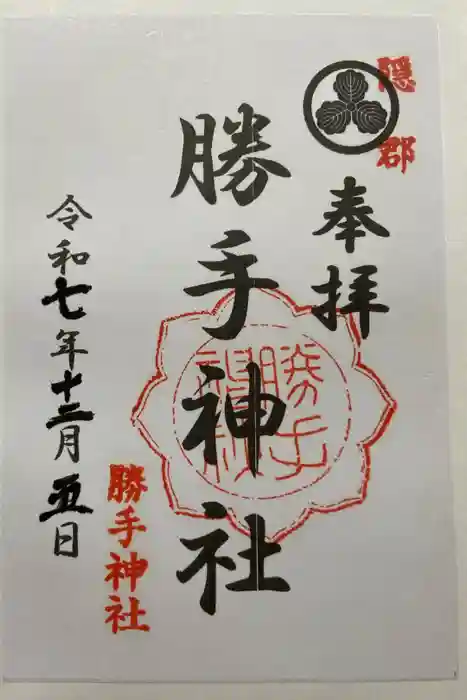 隠郡
奉拝
勝手神社
勝手神社
令和七年十二月五日
勝手神社